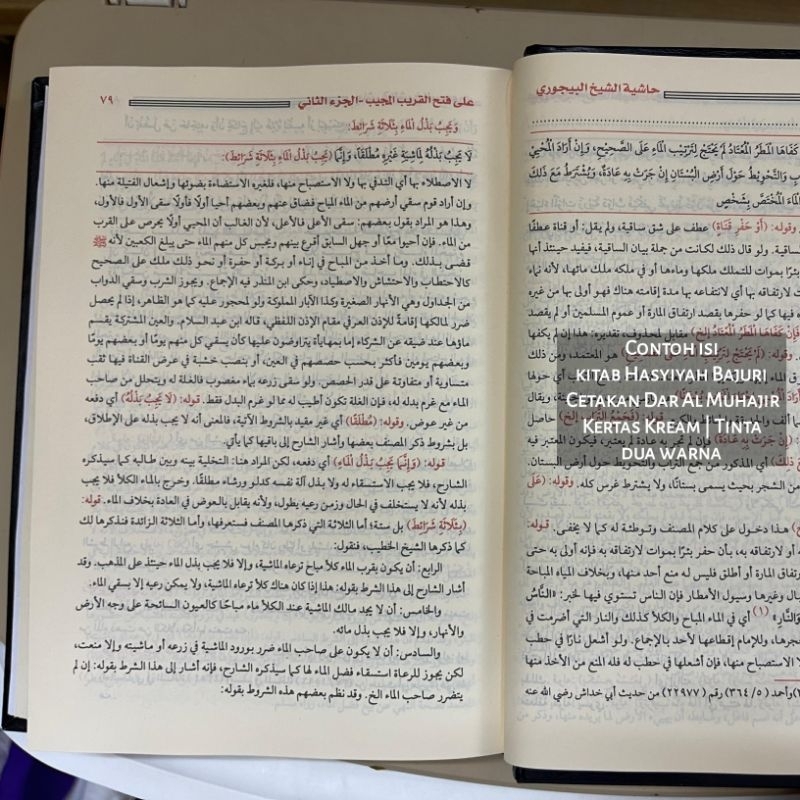 حاشية الشيخ البيجوري
كفاها المطر المعتاد لم يحتج لترتيب الماء على الصحيح، وإن أراد المحيي
والتحويط حول أرض البستان إن جرت به عادة، ويشترط مع ذلك
الماء المختص بشخص
وقوله: (أو حفر قناة) عطف على شق ساقية، ولم يقل: أو قناة عطفًا
ساقية. ولو قال ذلك لكانت من جملة بيان الساقية، فيفيد حينئذ أنها
بئرًا بموات للتملك ملكها وماءها أو في ملكه ملك مائها، لأنه نماء
لارتفاقه بها أي لانتفاعه بها مدة إقامته هناك فهو أولى بها من غيره
فيها كما لو حفرها بقصد ارتفاق المارة أو عموم المسلمين أو لم يقصد
كفاها المطر المعتاد إلخ) مقابل لمحذوف، تقديره: هذا إن لم يكفها
هو المعتمد، ومن ذلك
أي حولها
ويقال
حاصل
(إن جرت به عادة) فإن لم تجر به عادة لم يعتبر، فيكون المعتبر فيه
ذلك) أي المذكور من جمع التراب والتحويط حول أرض البستان.
من الشجر بحيث يسمى بستانًا، ولا يشترط غرس كله. وقوله: (على
هذا دخول على كلام المصنف وتوطئة له كما لا يخفى. قوله:
أو لارتفاقه به، بأن حفر بئرًا بموات لارتفاقه به فإنه أولى به حتى
ارتفاق المارة أو أطلق فليس له منع أحد منها، وبخلاف المياه المباحة
وغيرها وسيول الأمطار فإن الناس تستوي فيها لخبر: «النَّاسُ
وَالنَّارِ» (١) أي في الماء المباح والكلأ كذلك والنار التي أضرمت في
وللإمام إقطاعها لأحد بالإجماع. ولو أشعل نارًا في حطب
لا الاستصباح منها، فإن أشعلها في حطب له فله المنع من الأخذ منها
وأحمد (٥/ ٣٦٤) رقم (٢٢٩٧٧) من حديث أبي خداش رضي الله عنه
Contoh isi
kitab Hasyiyah Bajuri
Cetakan Dar Al Muhajir
Kertas Kream | Tinta
dua warna
على فتح القريب المجيب -الجزء الثاني ٧٩
وَيَجِبُ بَذْلُ المَاءِ بِثَلَاثَةِ شَرَائِطَ:
لَا يَجِبُ بَذْلُهُ لِمَاشِيَةِ غَيْرِهِ مُطْلَقًا، وَإِنَّمَا (يَجِبُ بَذْلُ المَاءِ بِثَلَاثَةِ شَرَائِطَ):
لا الاصطلاء بها أي التدفي بها ولا الاستصباح منها، فلغيره الاستضاءة بضوئها وإشعال الفتيلة منها.
وإن أراد قوم سقي أرضهم من الماء المباح فضاق عنهم وبعضهم أحيا أولًا فأولًا سقى الأول فالأول،
وهذا هو المراد بقول بعضهم: سقى الأعلى فالأعلى، لأن الغالب أن المحيي أولًا يحرص على القرب
من الماء. فإن أحيوا معًا أو جهل السابق أقرع بينهم ويحبس كل منهم الماء حتى يبلغ الكعبين لأنه ﷺ
قضى بذلك. وما أخذ من المباح في إناء أو بركة أو حفرة أو نحو ذلك ملك على الصحيح
كالاحتطاب والاحتشاش والاصطياد، وحكى ابن المنذر فيه الإجماع. ويجوز الشرب وسقي الدواب
من الجداول وهي الأنهار الصغيرة وكذا الآبار المملوكة ولو لمحجور عليه كما هو الظاهر، إذا لم يحصل
ضرر لمالكها إقامةً للإذن العرفي مقام الإذن اللفظي، قاله ابن عبد السلام. والعين المشتركة يقسم
ماؤها عند ضيقه عن الشركاء إما بمهايأة يتراضون عليها كأن يسقي كل منهم يومًا أو بعضهم يومًا
وبعضهم يومين فأكثر بحسب حصصهم في العين، أو بنصب خشبة في عرض القناة فيها ثقب
متساوية أو متفاوتة على قدر الحصص. ولو سقى زرعه بماء مغصوب فالغلة له ويتحلل من صاحب
الماء مع غرم بدله له، فإن الغلة تكون أطيب له مما لو غرم البدل فقط. قوله: (لا يجب بذله) أي دفعه
من غير عوض. وقوله: (مُطْلَقًا) أي غير مقيد بالشروط الآتية، فالمعنى أنه لا يجب بذله على الإطلاق،
بل بشروط ذكر المصنف بعضها وأشار الشارح إلى باقيها كما يأتي.
قوله: (وَإِنَّمَا يَجِبُ بَذْلُ المَاءِ) أي دفعه، لكن المراد هنا: التخلية بينه وبين طالبه كما سيذكره
الشارح، فلا يجب الاستقاء له ولا بذل آلة نفسه كدلو ورشاء مطلقًا. وخرج بالماء الكلأ فلا يجب
بذله لأنه لا يستخلف في الحال وزمن رعيه يطول، ولأنه يقابل بالعوض في العادة بخلاف الماء. قوله:
(بِثَلَاثَةِ شَرَائِطَ) بل ستة؛ أما الثلاثة التي ذكرها المصنف فستعرفها، وأما الثلاثة الزائدة فنذكرها لك
كما ذكرها الشيخ الخطيب، فنقول:
الرابع: أن يكون بقرب الماء كلأ مباح ترعاه الماشية، وإلا فلا يجب بذل الماء حينئذ على المذهب. وقد
أشار الشارح إلى هذا الشرط بقوله: هذا إذا كان هناك كلأ ترعاه الماشية، ولا يمكن رعيه إلا بسقي الماء.
والخامس: أن لا يجد مالك الماشية عند الكلأ ماء مباحًا كالعيون السائحة على وجه الأرض
والأنهار، وإلا فلا يجب بذل مائه.
والسادس: أن لا يكون على صاحب الماء ضرر بورود الماشية في زرعه أو ماشيته وإلا منعت،
لكن يجوز للرعاة استسقاء فضل الماء لها كما سيذكره الشارح، فإنه أشار إلى هذا الشرط بقوله: إن لم
يتضرر صاحب الماء الخ. وقد نظم بعضهم هذه الشروط بقوله: